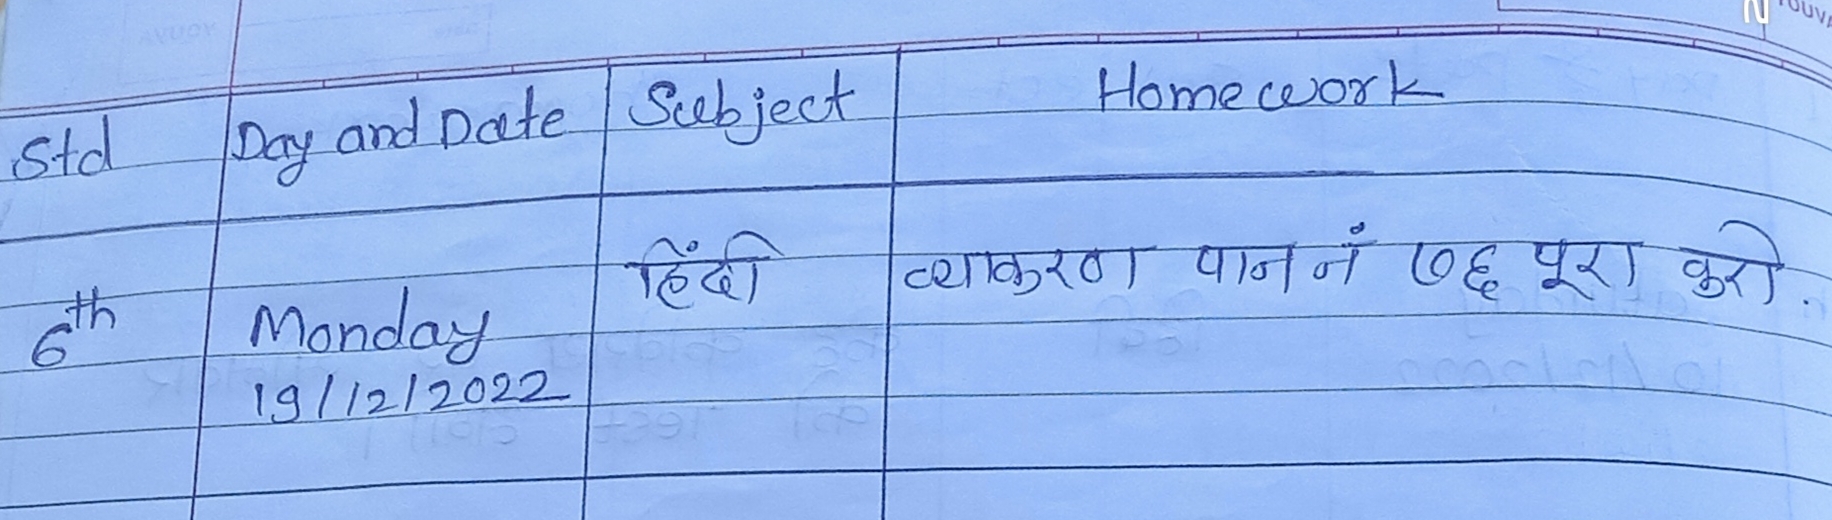 Std Day and Date Subject Homework
6th Monday 19/12/2022 हिंदी व्याकरण पान नं ७६ पूरा करो.